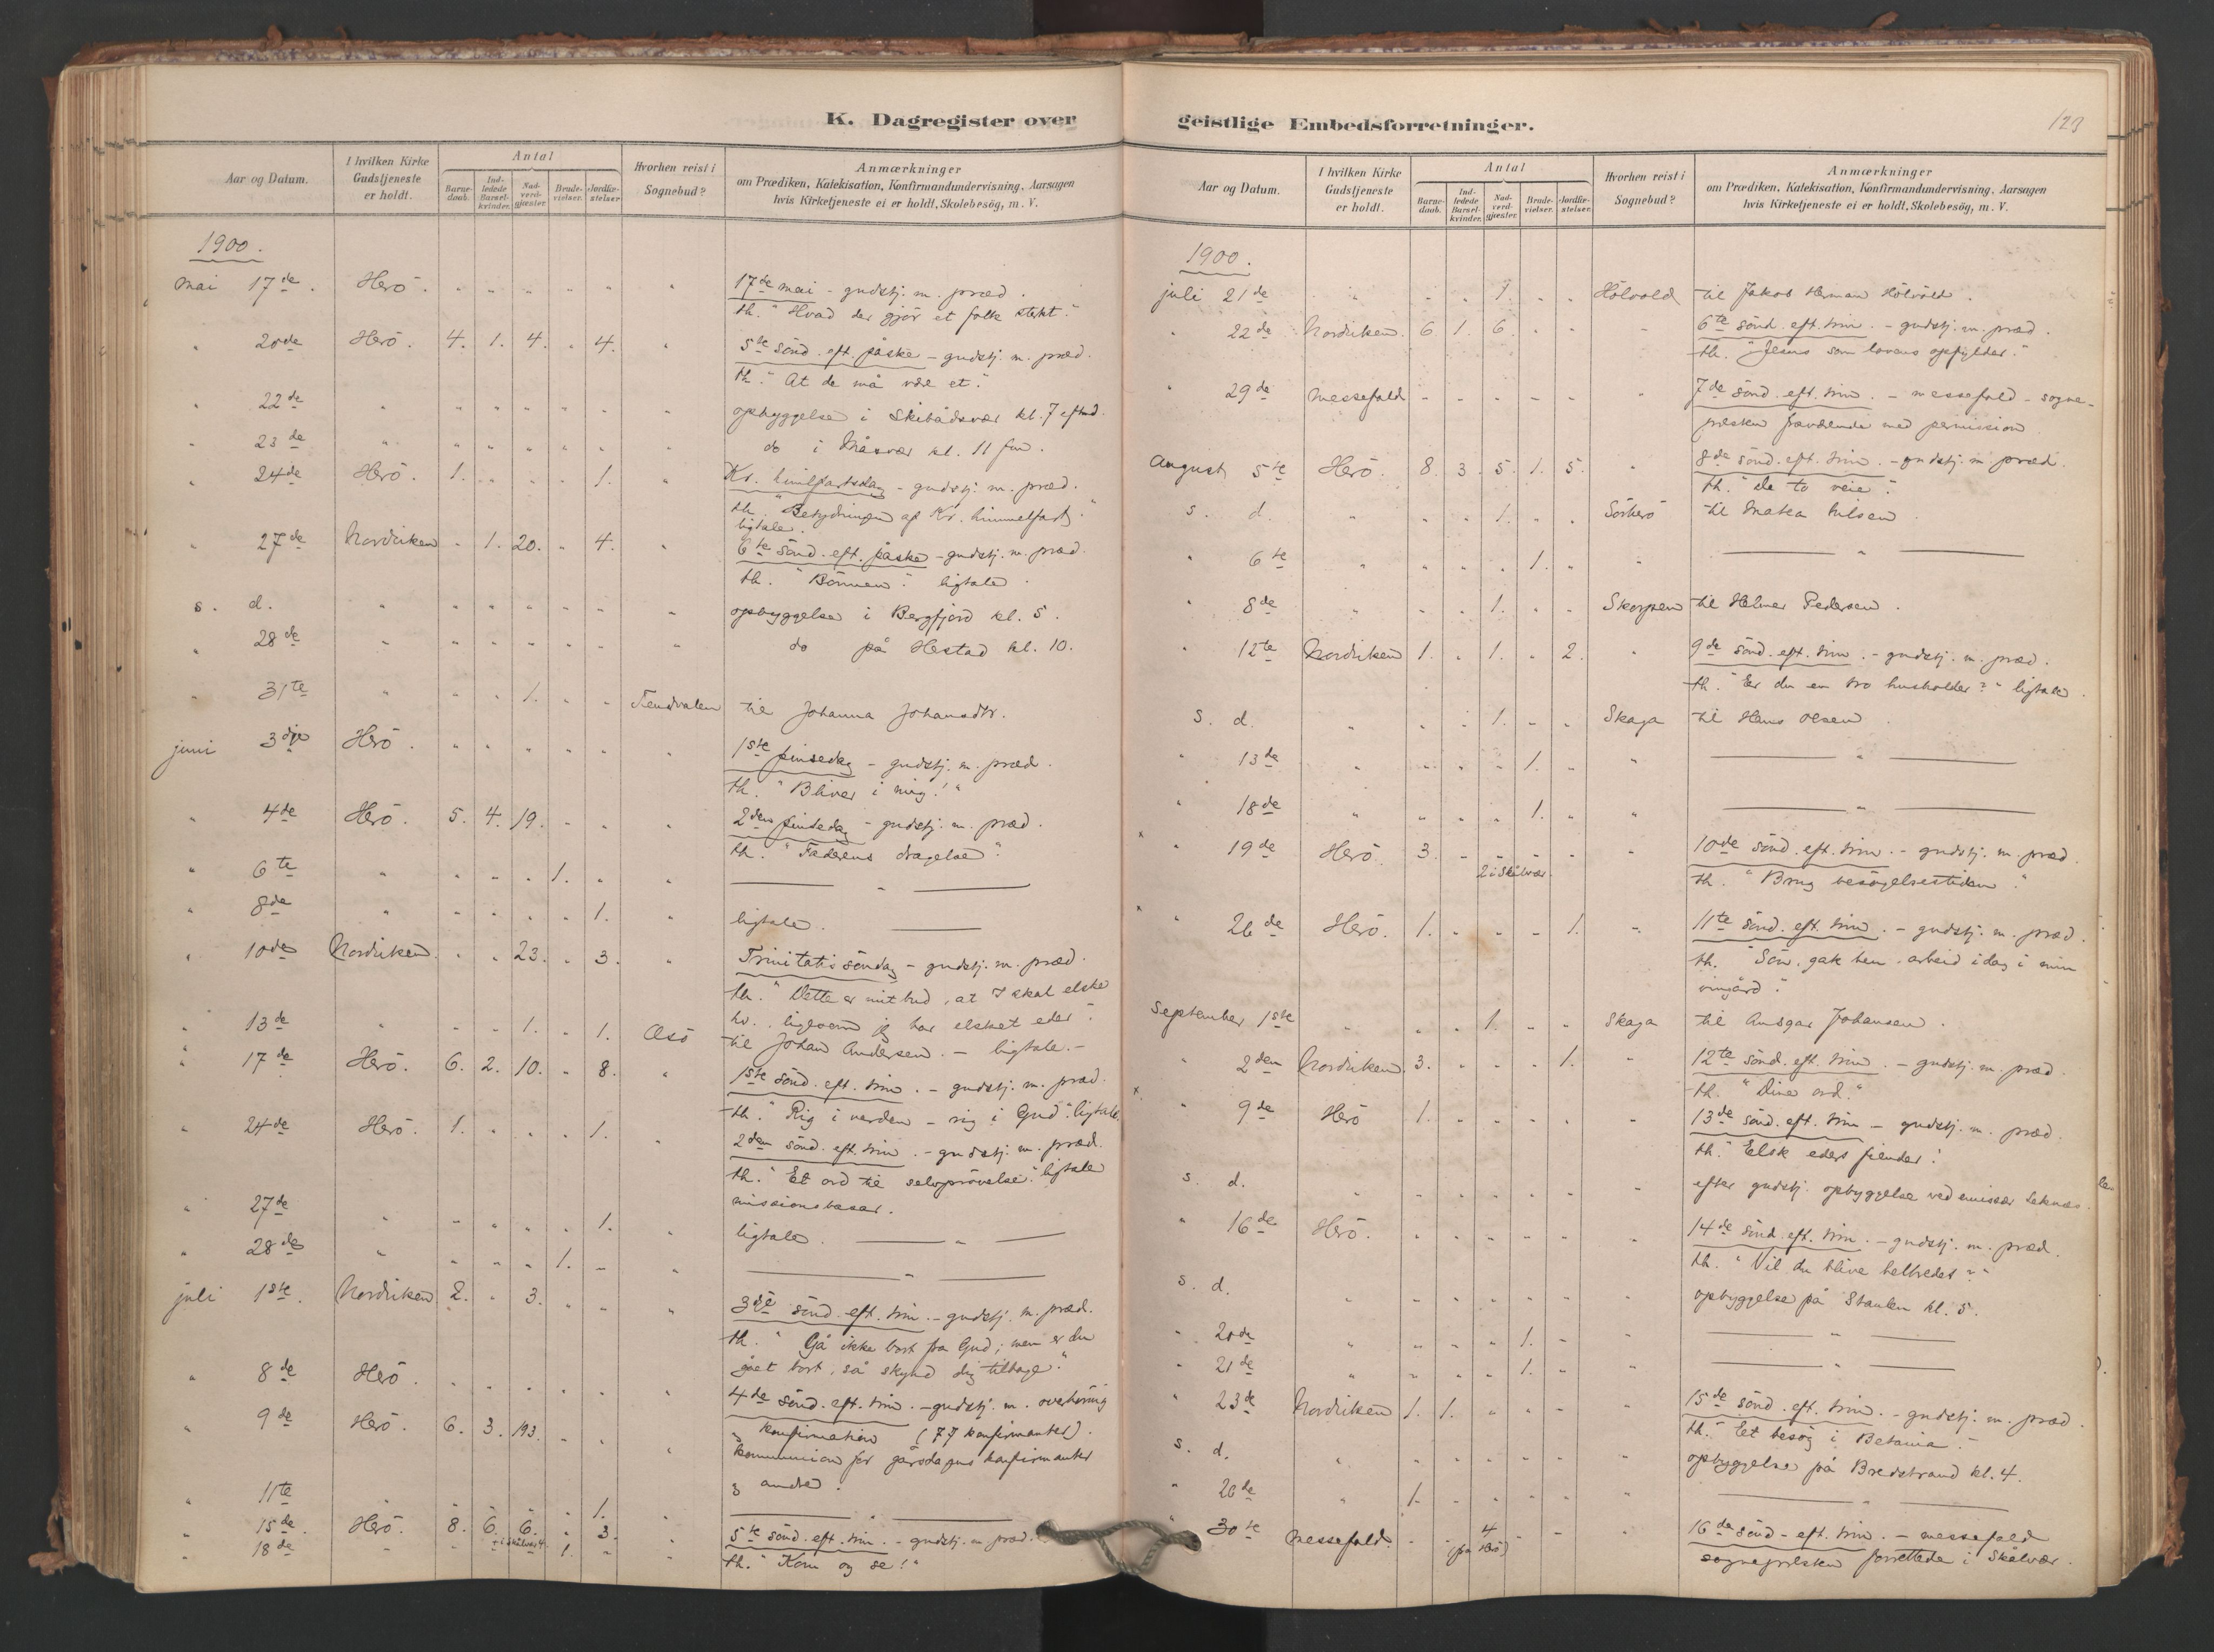 K. Dagregister over geistlige Embedsforretninger.
123
Aar og Datum.
I hvilken Kirke Gudstjeneste er holdt.
Antal
Barne-daab.
Ind-ledede Barsel-kvinder.
Nad-verd-gjæster.
Brude-vielser.
Jordfæ-stelser.
Hvorhen reist i Sognebud?
Anmærkninger
om Prædiken, Katekisation, Konfirmandundervisning, Aarsagen
hvis Kirketjeneste ei er holdt, Skolebesög, m. V.
1900.
mai 17de. Herö. " " " " " " 17de mai - gudstj. m. præd.
th. "Hvad der gjör et folk stærkt."
" 20de Herö. 4. 1. 4. " 4. " 5te sönd. eft. påske - gudstj. m. præd.
th. "At de må være et."
" 22de " " " " " " " opbyggelse i Skibådsvær kl. 7 eftmd.
" 23de " " " " " " " do i Måsvær kl. 11 fm.
" 24de Herö. 1. " " " 1. " Kr. himlfartsdag - gudstj. m. præd.
th. "Betydningen af Kr. himmelfart."
ligtale.
" 27de Nordviken " 1. 20. " 4. " 6te sönd. eft. påske - gudstj. m. præd.
th. "Bönnen". ligtale.
s. d. " " " " " " " opbyggelse i Bergfjord kl. 5.
" 28de " " " " " " " do på Hestad kl. 10.
" 31te " " " 1. " " Tenvalen til Johanna Johansdtr.
juni 3dje Herö. " " " " " " 1ste pinsedag - gudstj. m. præd.
th. "Bliver i mig!"
" 4de Herö. 5. 4. 19. " " " 2den pinsedag - gudstj. m. præd.
th. "Faderens dragelse".
" 6te " " " " 1. " " — " —
" 8de " " " " " 1. " ligtale. —
" 10de Nordviken. " " 23. " 3. " Trinitatis söndag - gudstj. m. præd.
th. "Dette er mit bud, at I skal elske
hv., ligesom jeg har elsket eder".
" 13de " " " 1. " 1. Æsö til Johan Andersen. - ligtale. -
" 17de Herö. 6. 2. 10. " 8. " 1ste sönd. eft. trin. - gudstj. m. præd.
th. "Rig i verden - rig i Gud". ligtale.
" 24de Herö. 1. " " " 1. " 2den sönd. eft. trin. - gudstj. m. præd.
th. "Et ord til selvprövelse". ligtale
missionsbasar.
" 27de " " " " " 1. " ligtale. — " —
" 28de " " " " 1. " " — " —
juli 1ste. Nordviken 2. " 3. " " " 3dje sönd. eft. trin. - gudstj. m. præd.
th. "Gå ikke bort fra Gud; men er du
gået bort, så skynd dig tilbage."
" 8de Herö. " " " " " " 4de sönd. eft. trin. - gudstj. m. overhöring
" konfirmation (77 konfirmanter).
" 9de Herö. 6. 3. 193. " " " kommunion for gårsdagens konfirmanter
og andre.
" 11te " " " " " 1. " — " —
" 15de. Herö. 8. 6. 6. " 3. " 5te sönd. eft. trin. - gudstj. m. præd.
+ i skålvær 4.
" 18de " " " " 1. " " th. "Kom og se!"
Aar og Datum.
I hvilken Kirke Gudstjeneste er holdt.
Antal
Barne-daab.
Ind-ledede Barsel-kvinder.
Nad-verd-gjæster.
Brude-vielser.
Jordfæ-stelser.
Hvorhen reist i Sognebud?
Anmærkninger
om Prædiken, Katekisation, Konfirmandundervisning, Aarsagen
hvis Kirketjeneste ei er holdt, Skolebesög, m. V.
1900.
juli 21de " " " 1. " " Hölvold til Jakob Herman Hölvold.
" 22de Nordviken. 6. 1. 6. " " " 6te sönd. eft. trin. - gudstj. m. præd.
th. "Jesus som lovens opfylder."
" 29de messefald - - - - - " 7de sönd. eft. trin. - messefald - sogne-
præsten fraværende med permission.
August 5te Herö. 8. 3. 5. 1. 5. " 8de sönd. eft. trin. - gudstj. m. præd.
th. "De to veie".
s. d. " " " 1. " " Sörherö til Matea Nilsen
" 6te " " " " 1. " " — " —
" 8de " " " 1. " " Skorpen til Helmer Pedersen.
" 12te Nordviken 1. " 1. " 2. " 9de sönd. eft. trin. - gudstj. m. præd.
th. "Er du en tro husholder?" ligtale.
s. d. " " " 1. " " Skaga til Hans Olsen.
" 13de " " " " 1. " " — " —
" 18de " " " " 1. " " — " —
x " 19de Herö. 3. - " " " " 10de sönd. eft. trin. - gudstj. m. præd.
2 i Skålvær
th. "Brug besögelsestiden."
x " 26de Herö. 1. " " " 1. " 11te sönd. eft. trin. - gudstj. m. præd.
th. "Sön, gak hen, arbeid idag i min
vingård".
September 1ste " " " 1. " " Skaga til Ansgar Johansen.
" 2den Nordviken. 3. " " " 1. " 12te sönd. eft. trin. - gudstj. m. præd.
th. "Dine ord."
x " 9de Herö 1. " " " " " 13de sönd. eft. trin - gudstj. m. præd.
th. "Elsk eders fiender!
s. d. " " " " " " " efter gudstj. opbyggelse ved emissær Leknes.
" 16de Herö. " " " " " " 14de sönd. eft. trin. - gudstj. m. præd.
th. "Vil du blive helbredet?"
s. d. " " " " " " " opbyggelse på Staulen kl. 5.
" 20de " " " " 1. " " — " —
" 21de " " " " 1. " " — " —
" 23de Nordviken 1. 1. " " " " 15de sönd. eft. trin. - gudstj. m. præd.
th. "Et besög i Betania."
s. d. " " " " " " " opbyggelse på Bredstrand kl. 4.
" 26de " 1. " " " " " — " —
" 30te messefald. - - 4 - - " 16de sönd - eft. trin. - messefald
(fra Herö)
sognepræsten forrettede i Skålvær.